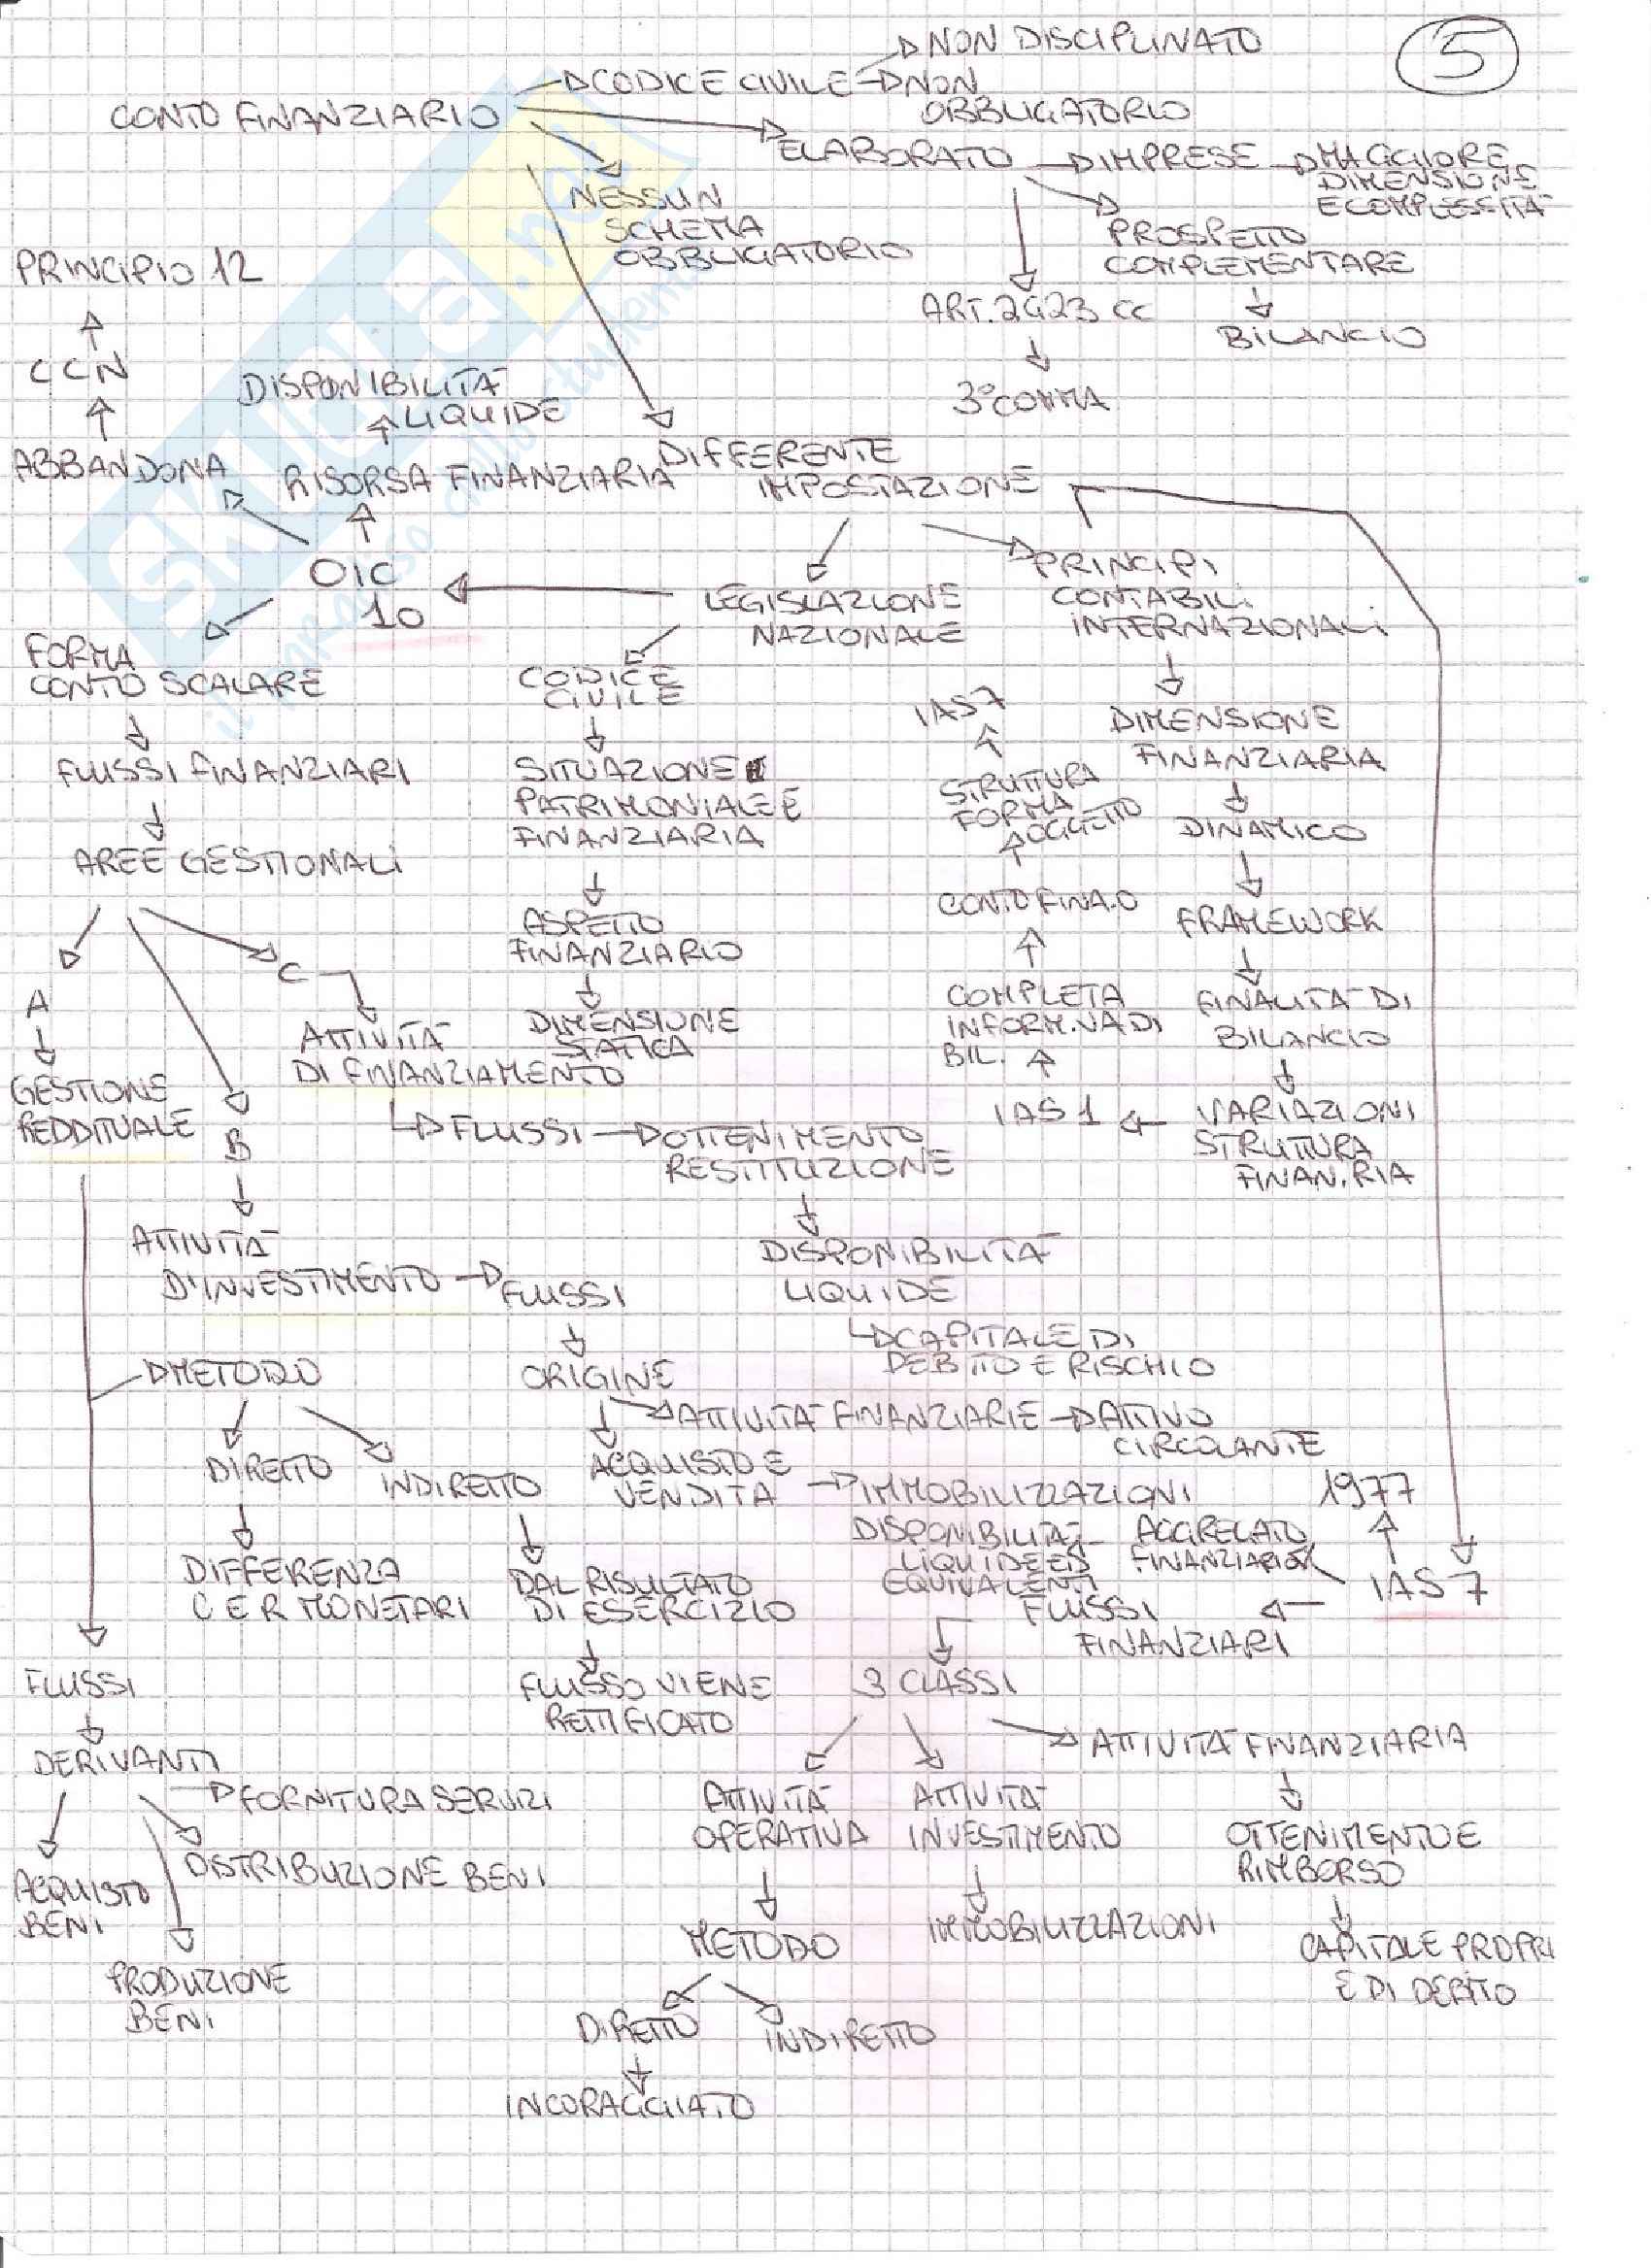 5
CONTO FINANZIARIO
CODICE CIVILE
NON DISCIPLINATO
NON
OBBLIGATORIO
ELABORATO
IMPRESE
MAGGIORE
DIMENSIONE
E COMPLESSITÀ
NESSUN
SCHEMA
OBBLIGATORIO
PROSPETTO
COMPLEMENTARE
BILANCIO
ART. 2423 CC
3° COMMA
PRINCIPIO 12
CCN
ABBANDONA
DISPONIBILITÀ
LIQUIDE
RISORSA FINANZIARIA
DIFFERENTE
IMPOSTAZIONE
OIC
10
LEGISLAZIONE
NAZIONALE
PRINCIPI
CONTABILI
INTERNAZIONALI
FORMA
CONTO SCALARE
FLUSSI FINANZIARI
AREE GESTIONALI
CODICE
CIVILE
SITUAZIONE
PATRIMONIALE E
FINANZIARIA
ASPETTO
FINANZIARIO
DIMENSIONE
STATICA
IAS7
STRUTTURA
FORMA
OGGETTO
CONTO FINA.O
COMPLETA
INFORM.VA DI
BIL.
IAS 1
DIMENSIONE
FINANZIARIA
DINAMICO
FRAMEWORK
FINALITÀ DI
BILANCIO
VARIAZIONI
STRUTTURA
FINAN.RIA
A
GESTIONE
REDDITUALE
B
C
ATTIVITÀ
DI FINANZIAMENTO
FLUSSI
OTTENIMENTO
RESTITUZIONE
DISPONIBILITÀ
LIQUIDE
CAPITALE DI
DEBITO E RISCHIO
ATTIVITÀ
D'INVESTIMENTO
FLUSSI
ORIGINE
ATTIVITÀ FINANZIARIE
ATTIVO
CIRCOLANTE
ACQUISTO E
VENDITA
IMMOBILIZZAZIONI
METODO
DIRETTO
INDIRETTO
DIFFERENZA
C E R MONETARI
DAL RISULTATO
DI ESERCIZIO
FLUSSO VIENE
RETTIFICATO
1977
IAS 7
DISPONIBILITÀ
LIQUIDE ED
EQUIVALENTI
AGGREGATO
FINANZIARIO
FLUSSI
FINANZIARI
3 CLASSI
FLUSSI
DERIVANTI
FORNITURA SERVIZI
DISTRIBUZIONE BENI
ACQUISTO
BENI
PRODUZIONE
BENI
ATTIVITÀ
OPERATIVA
ATTIVITÀ
INVESTIMENTO
ATTIVITÀ FINANZIARIA
METODO
IMMOBILIZZAZIONI
OTTENIMENTO E
RIMBORSO
CAPITALE PROPRI
E DI DEBITO
DIRETTO
INDIRETTO
INCORAGGIATO